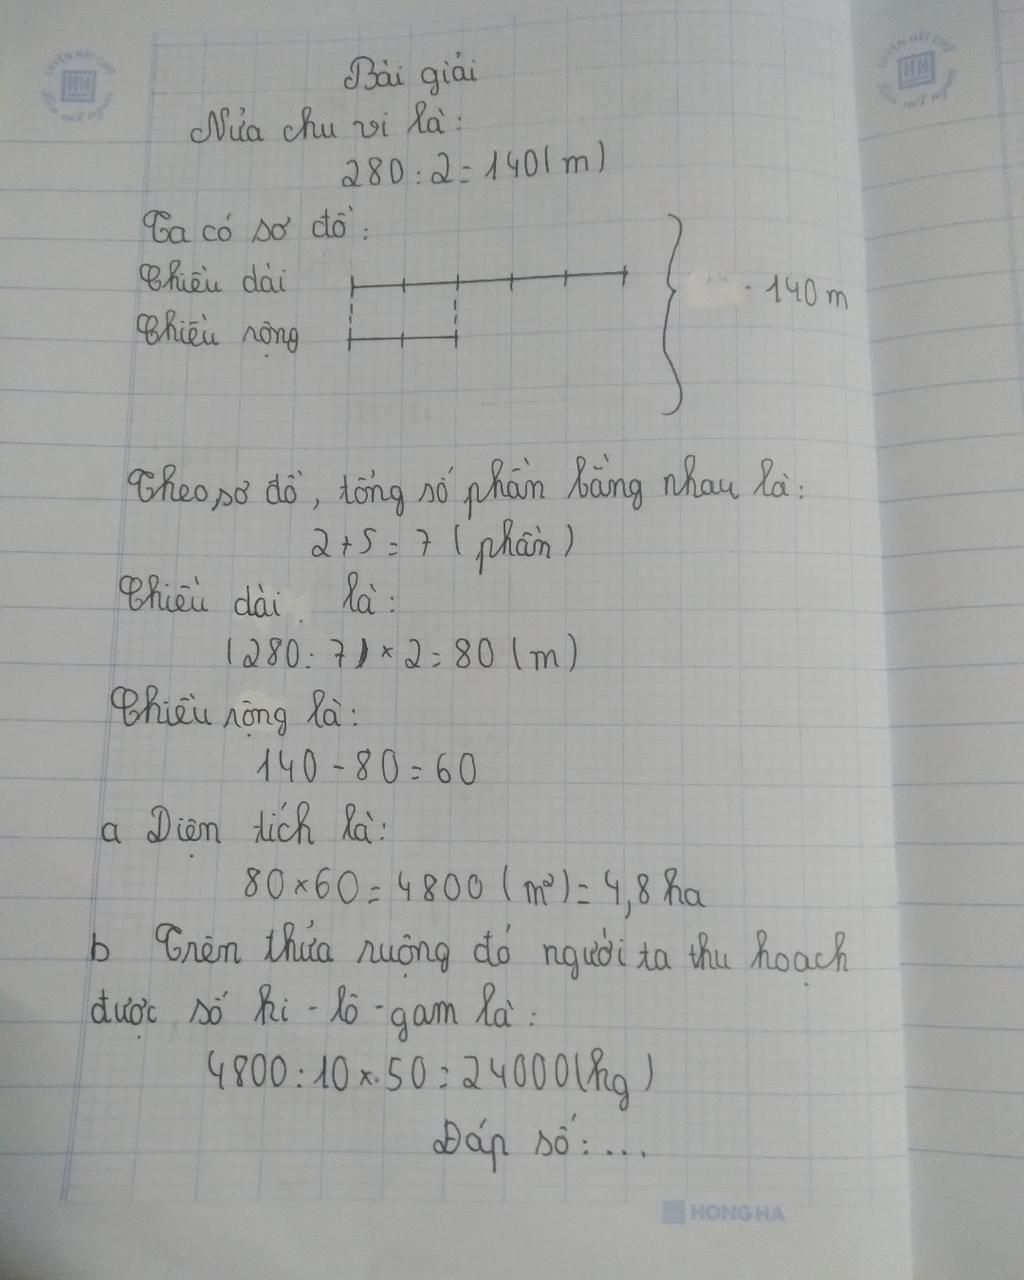 Bài giải
Nửa chu vi là:
280 : 2 = 140 (m)
Ta có sơ đồ:
Chiều dài
140 m
Chiều rộng
Theo sơ đồ, tổng số phần bằng nhau là:
2 + 5 = 7 (phần)
Chiều dài là:
(280 : 7) × 2 = 80 (m)
Chiều rộng là:
140 - 80 = 60
a Diện tích là:
80 × 60 = 4800 (m²) = 4,8 ha
b Trên thửa ruộng đó người ta thu hoạch
được số ki - lô - gam là:
4800 : 10 × 50 = 24000 (kg)
Đáp số: ...
HONG HA